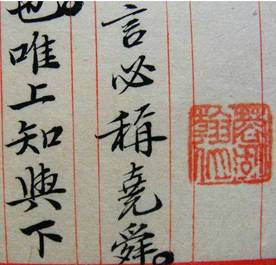 言必稱堯舜。
也唯上知與下